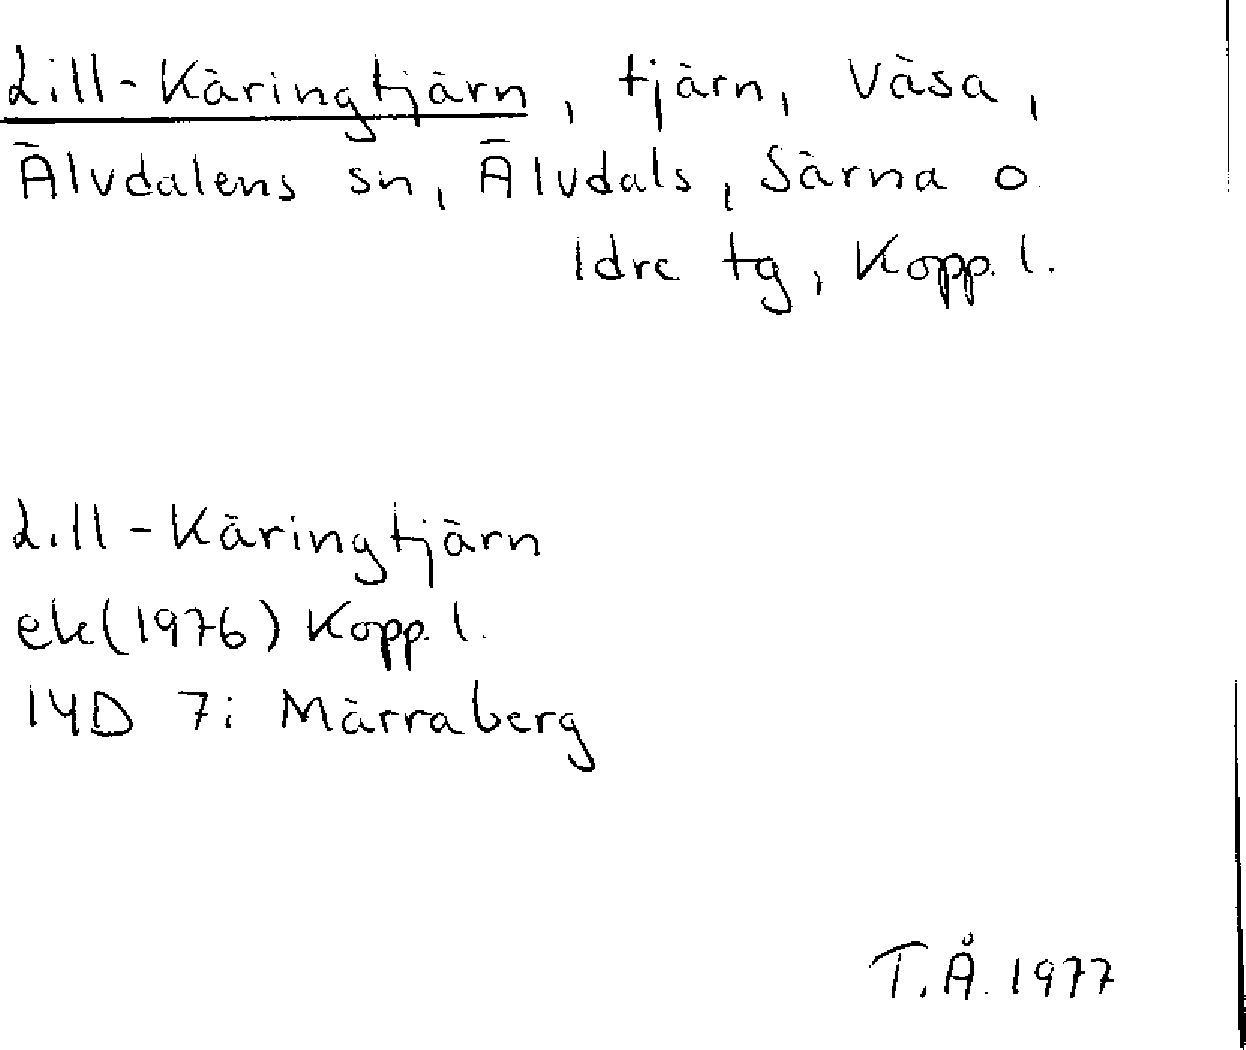 Lill-Käringtjärn, tjärn, Väsa,
Älvdalens sn, Älvdals, Särna o
Idre tg, Kopp. l.
Lill-Käringtjärn
ek(1976) Kopp. l.
14D 7i Märraberg
T.Å. 1977